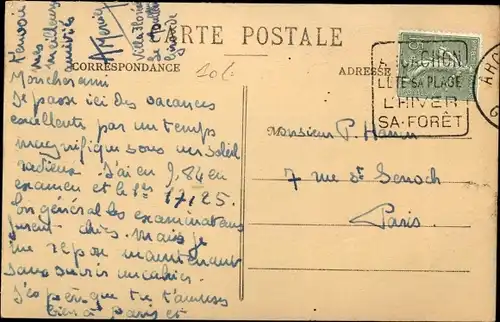 CARTE POSTALE
CORRESPONDANCE
ADRESSE
10 c
Mon cher ami
Je passe ici des vacances
excellentes par un temps
magnifique sous un soleil
radieux. J'ai en 9,84 en
examen et le 1er 17,25.
En général les examinateurs
furent chics. Mais je
me repose maintenant
sans ouvrir un cahier.
J'espère que tu t'amuses
bien à Paris et
Reçois
mes
meilleures
amitiés
Villa
ARCACHON
L'ÉTÉ SA PLAGE
L'HIVER
SA FORÊT
Monsieur P. Hamon
7 rue St Senoch
Paris